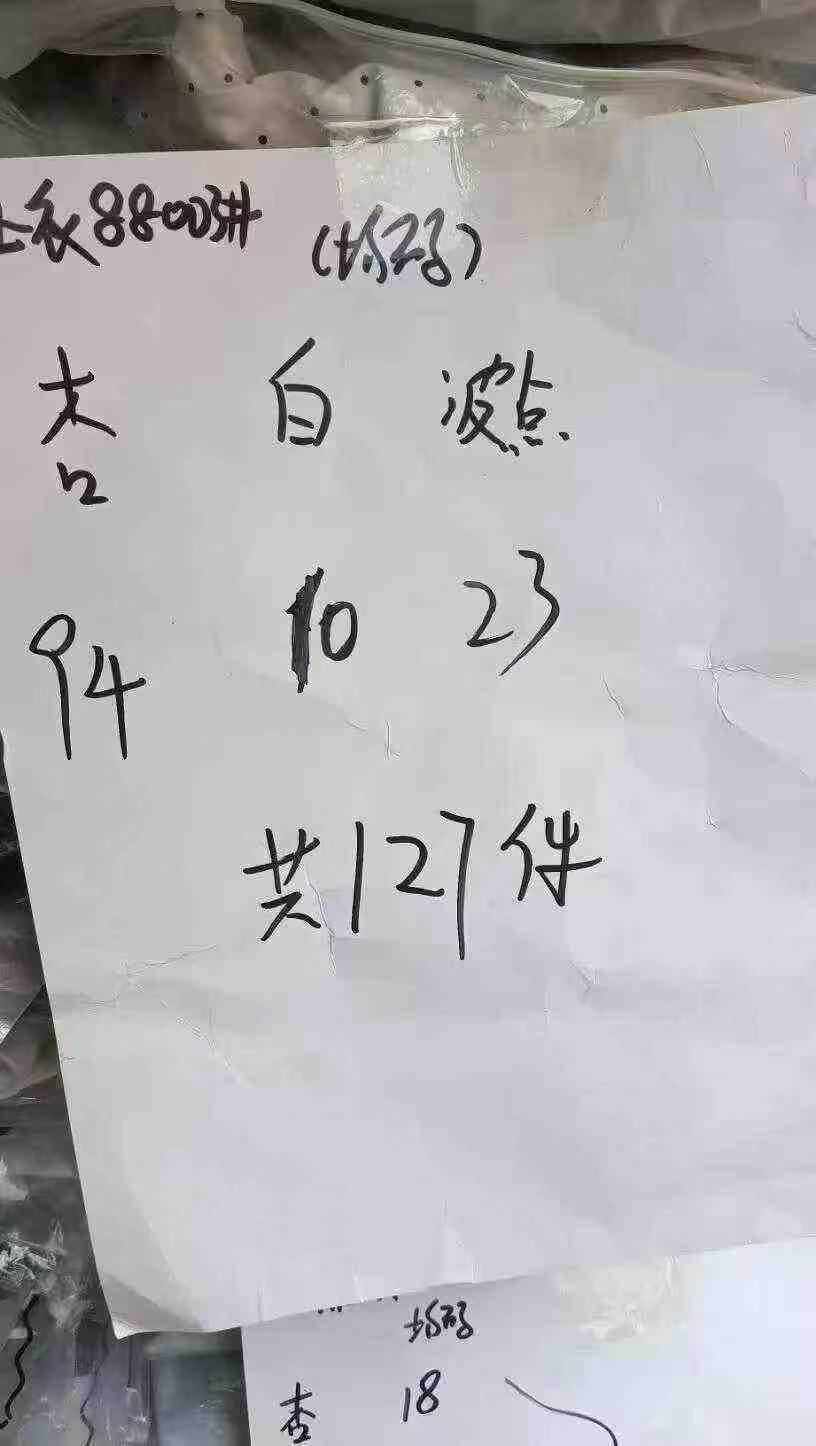 上衣8800讲 (均码)
杏 白 波点
94 10 23
共127件
均码
杏 18